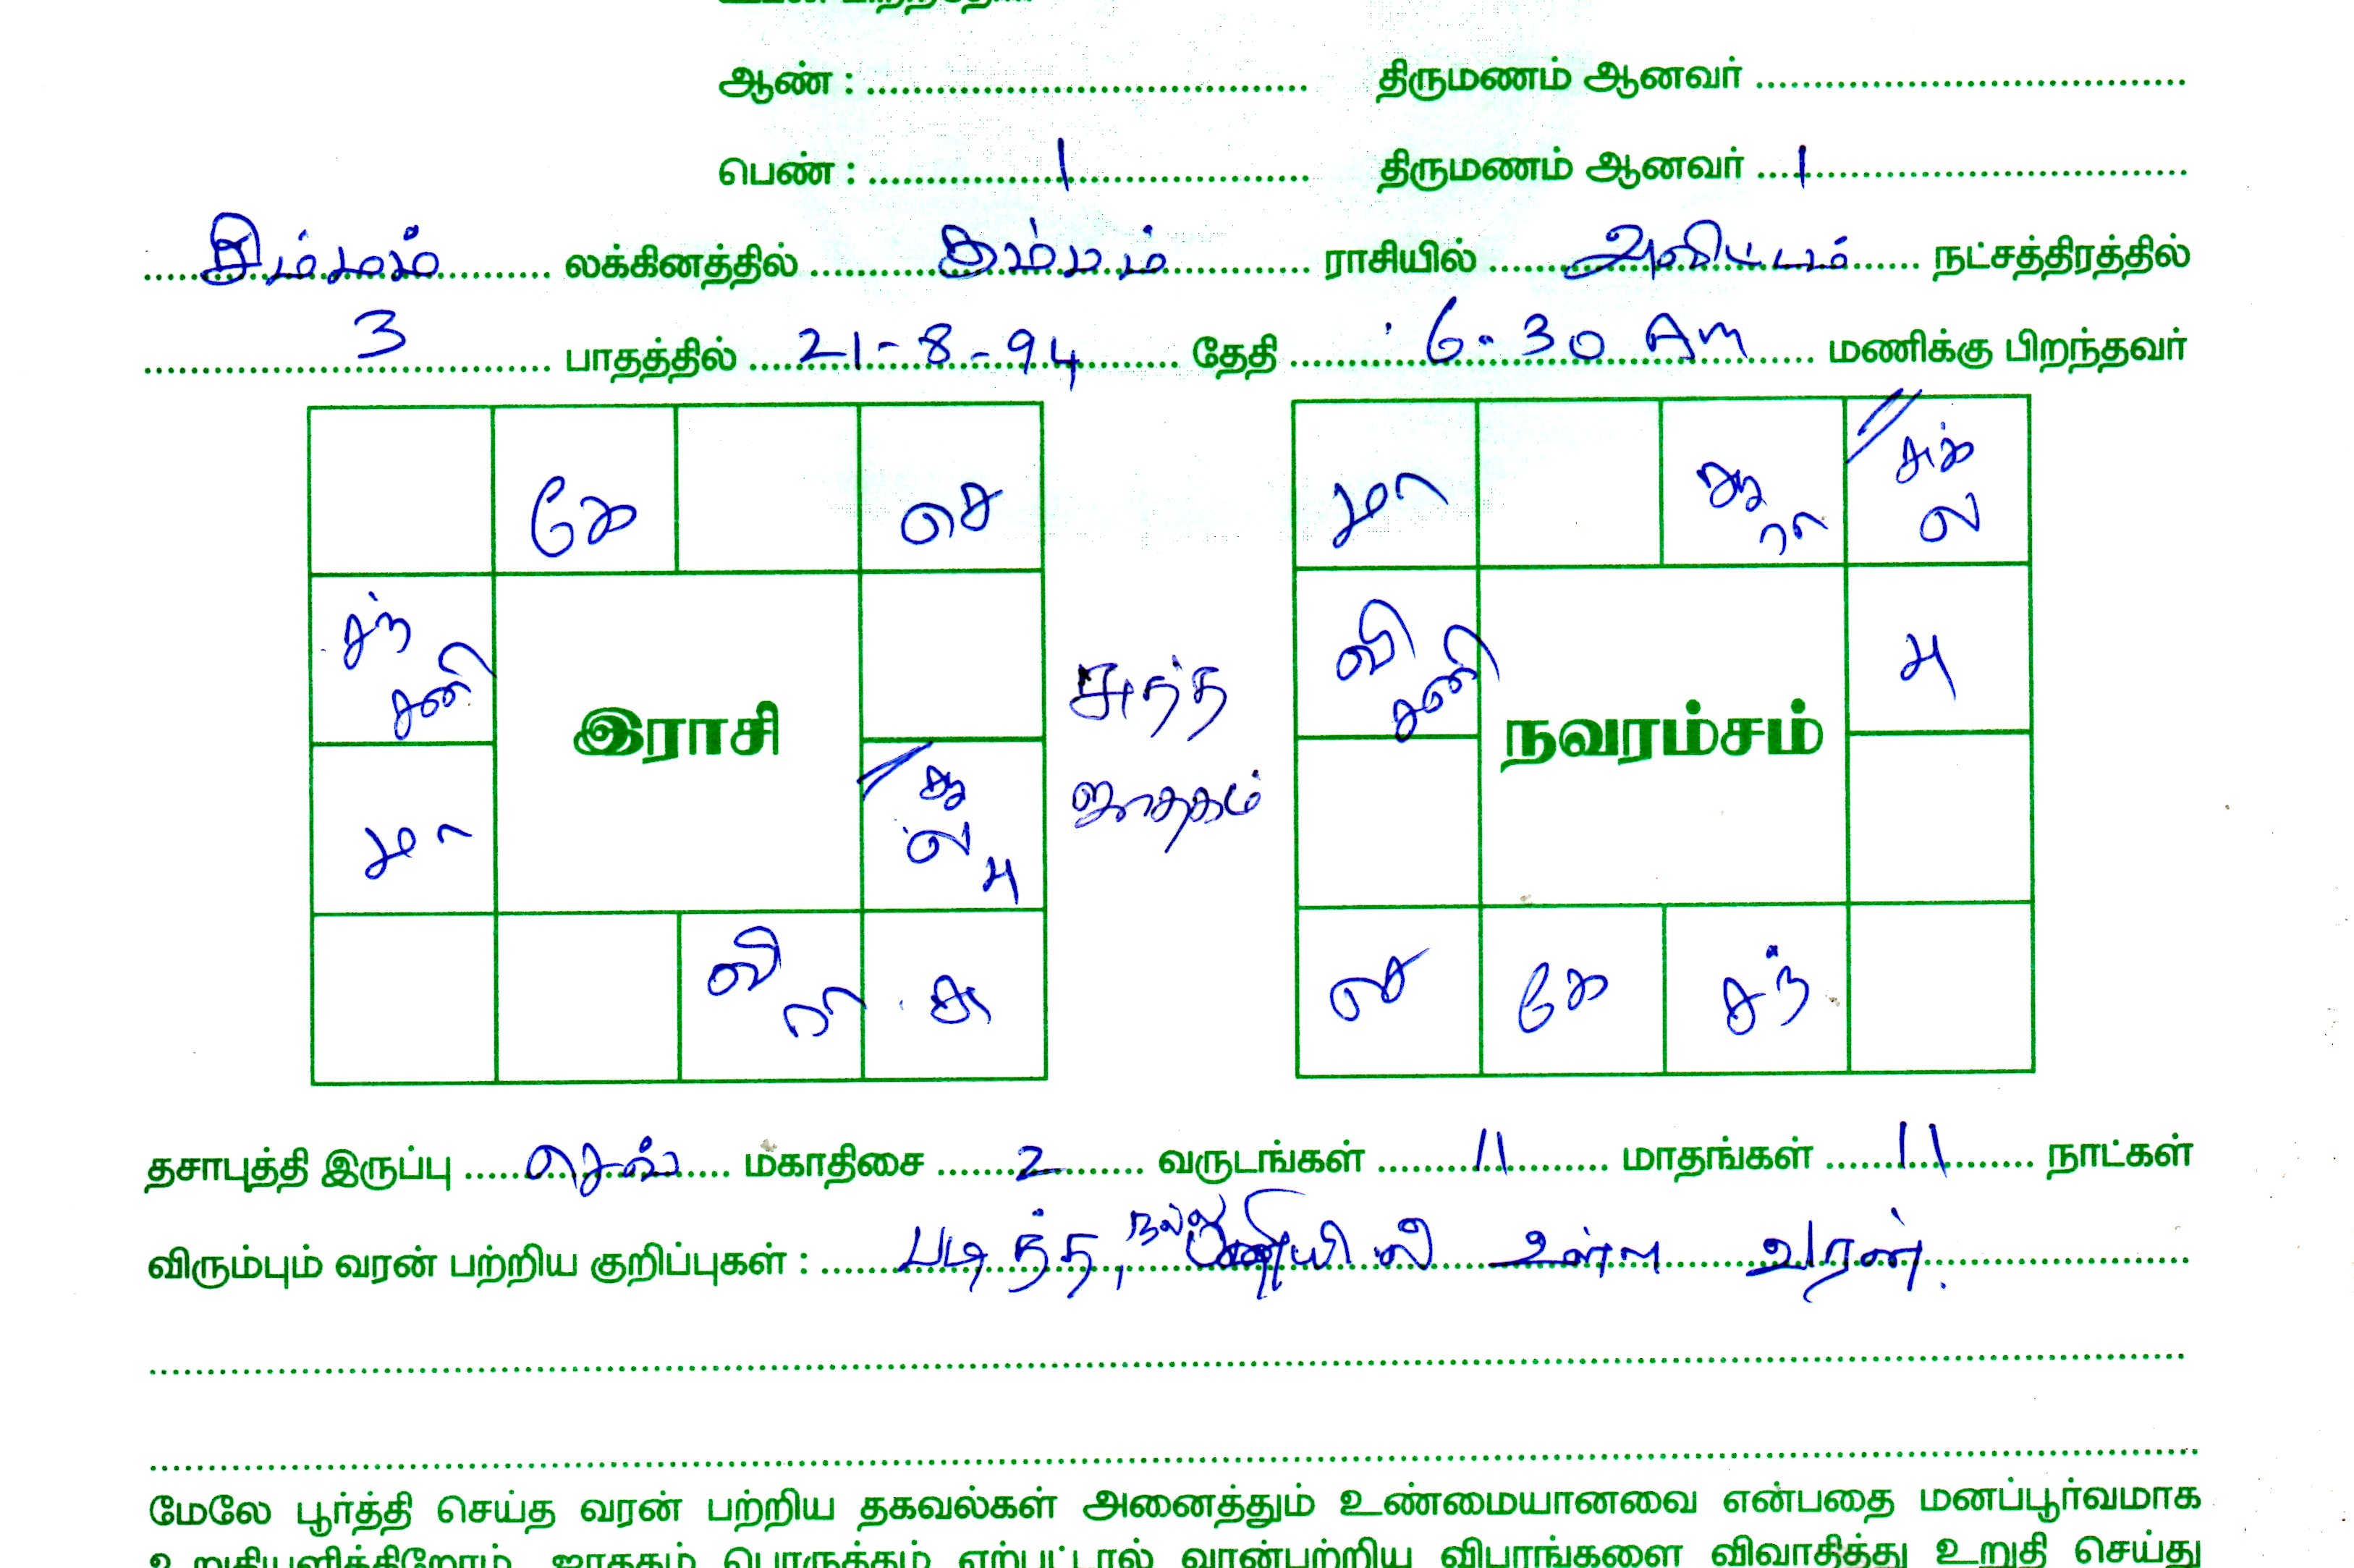 ஆண் : திருமணம் ஆனவர்
பெண் : 1 திருமணம் ஆனவர் 1
சிம்மம் லக்கினத்தில் கும்பம் ராசியில் அவிட்டம் நட்சத்திரத்தில்
3 பாதத்தில் 21-8-94 தேதி 6.30 Am மணிக்கு பிறந்தவர்
கே செ
மா சூ ரா சுக் ல
சந் சனி
இராசி
சுத்த ஜாதகம்
வி சனி
நவரம்சம்
பு
மா
சூ ல பு
வி ரா சு
செ கே சந்
தசாபுத்தி இருப்பு செவ் மகாதிசை 2 வருடங்கள் 11 மாதங்கள் 11 நாட்கள்
விரும்பும் வரன் பற்றிய குறிப்புகள் : படித்த, நல்ல பணியில் உள்ள வரன்.
மேலே பூர்த்தி செய்த வரன் பற்றிய தகவல்கள் அனைத்தும் உண்மையானவை என்பதை மனப்பூர்வமாக
உறுதியளிக்கிறோம். ஜாதகம் பொருத்தம் ஏற்பட்டால் வரன்பற்றிய விபரங்களை விவாதித்து உறுதி செய்து